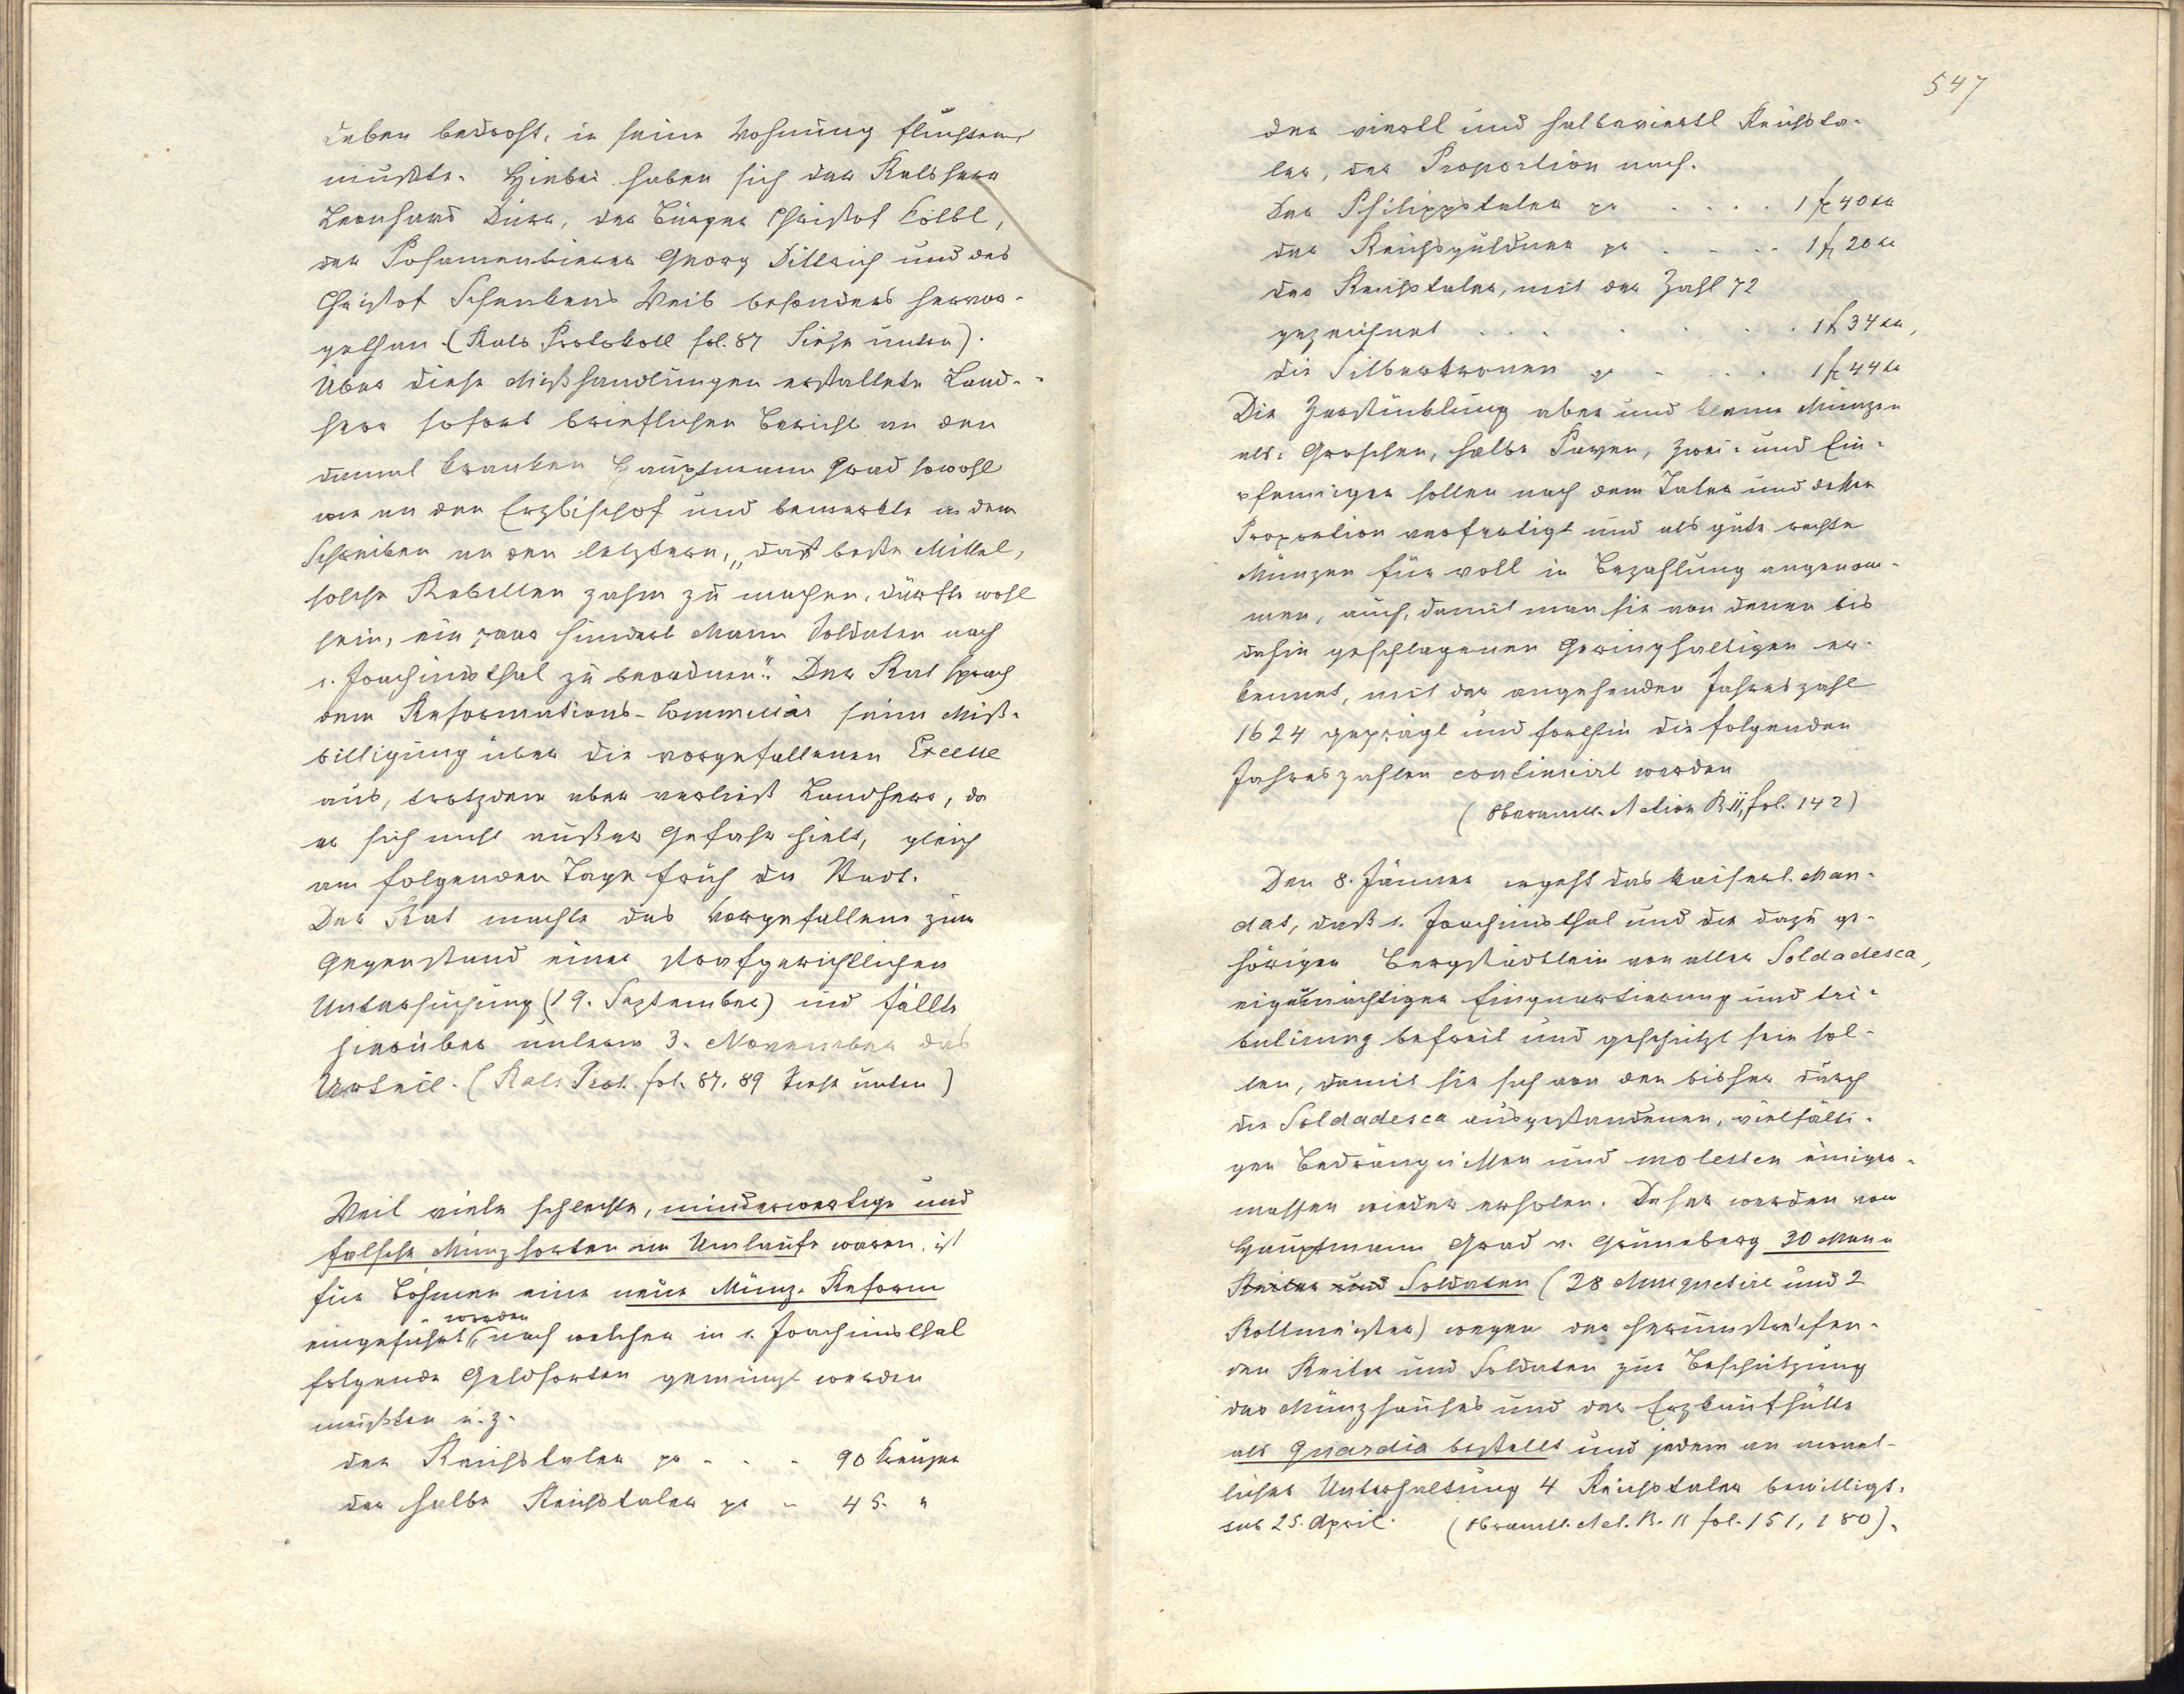 Leben bedroht, in seine Wohnung flüchten
mußte. Hiebei haben sich der Ratsherr
Leonhard Dürr, der Bürger Christof Kölbl,
der Posamentierer Georg Dittrich und des
Christof Schenkens Weib besonders hervor-
gethan (Rats Protokoll fol. 87 Siehe unten).
Über diese Mißhandlungen erstattete Land-
herr sofort brieflichen Bericht an den
damal kranken Hauptmann Grad sowohl
wie an den Erzbischof und bemerkte in dem
Schreiben an den letztern, „das beste Mittel,
solche Rebellen zahm zu machen, dürfte wohl
sein, ein paar hundert Mann Soldaten nach
s. Joachimsthal zu beordnen". Der Rat sprach
dem Reformations-Commissär seine Miß-
billigung über die vorgefallenen Excesse
aus, trotzdem aber verließ Landherr, da
er sich nicht außer Gefahr hielt, gleich
am folgenden Tage früh die Stadt.
Der Rat machte das Vorgefallene zum
Gegenstand einer strafgerichtlichen
Untersuchung (19. September) und fällte
hierüber unterm 3. November das
Urteil. (Rats Prot. fol. 87, 89 siehe unten)
Weil viele schlechte, minderwertige und
falsche Münzsorten im Umlaufe waren, ist
für Böhmen eine neue Münz-Reform
worden
eingeführt, nach welcher in s. Joachimsthal
folgende Geldsorten gemünzt werden
mußten u. z.
der Reichstaler pr - - - 90 Kreuzer
der halbe Reichstaler pr - 45 "
547
der viertl und halbeviertl Reichsta-
ler, der Proportion nach.
Der Philippstaler pr . . . . 1 f 40 kr
der Reichsguldner pr . . . . 1 f 20 kr
der Reichstaler, mit der Zahl 72
gezeichnet . . . . . . 1 f 34 kr,
die Silberkronen pr . . . 1 f 44 kr
Die Zerstücklung aber und kleine Münzen
als: Groschen, halbe Pazen, Zwei- und Ein-
pfenniger sollen nach dem Taler und dessen
Proportion verfertigt und als gute rechte
Münzen für voll in Bezahlung angenom-
men, auch, damit man sie von denen bis
dahin geschlagenen Geringhaltigen er-
kennet, mit der angehenden Jahreszahl
1624 geprägt und forthin die folgenden
Jahreszahlen continuirt werden
(Oberamtl. Action B. II, fol. 142)
Den 8. Jänner ergeht das kaiserl. Man-
dat, daß s. Joachimsthal und die dazu ge-
hörigen Bergstädtlein von aller Soldadesca,
eigenmächtiger Einquartierung und tri-
bulirung befreit und geschützt sein sol-
len, damit sie sich von den bisher durch
die Soldadesca ausgestandenen, vielfälti-
gen Bedrängnissen und molesten einiger-
massen wieder erholen. Daher werden vom
Hauptmann Grad v. Grüneberg 30 Mann
Reiter und Soldaten (28 Musquetire und 2
Rottmeister) wegen der herumstreifen-
den Reiter und Soldaten zur Beschützung
des Münzhauses und der Erzkaufhütte
als Guardia bestellt und jedem an monat-
licher Unterhaltung 4 Reichstaler bewilligt.
sub 25. April. (Oberamtl. Act. B. II fol. 151, 180).